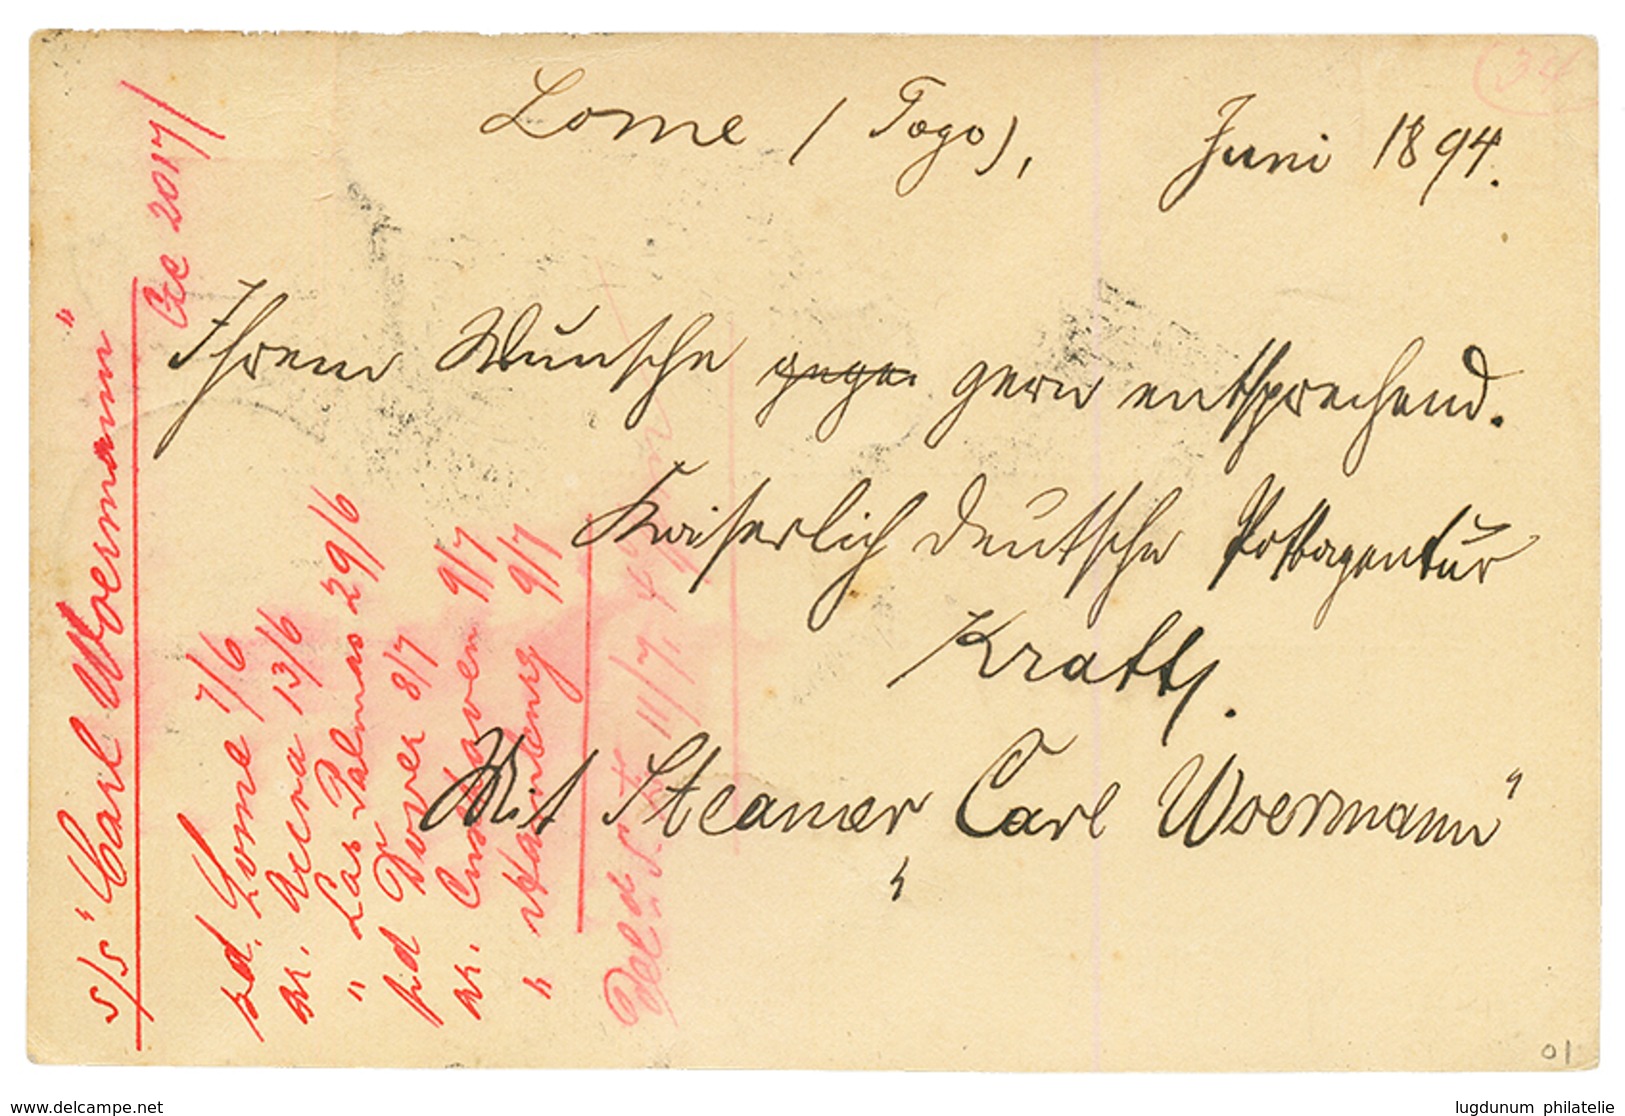 Lome (Togo), Juni 1894.
Ihrem Wunsche gegen gern entsprechend.
Kaiserlich deutsche Postagentur
Kratz.
Mit Steamer „Carl Woermann"
s/s "Carl Woermann"
2017/
pd. Lome 7/6
ar. Accra 13/6
" Las Palmas 29/6
pd Dover 8/7
ar. Cuxhaven 9/7
" Hamburg 9/7
11/7
34
01
www.delcampe.net
lugdunum philatelie